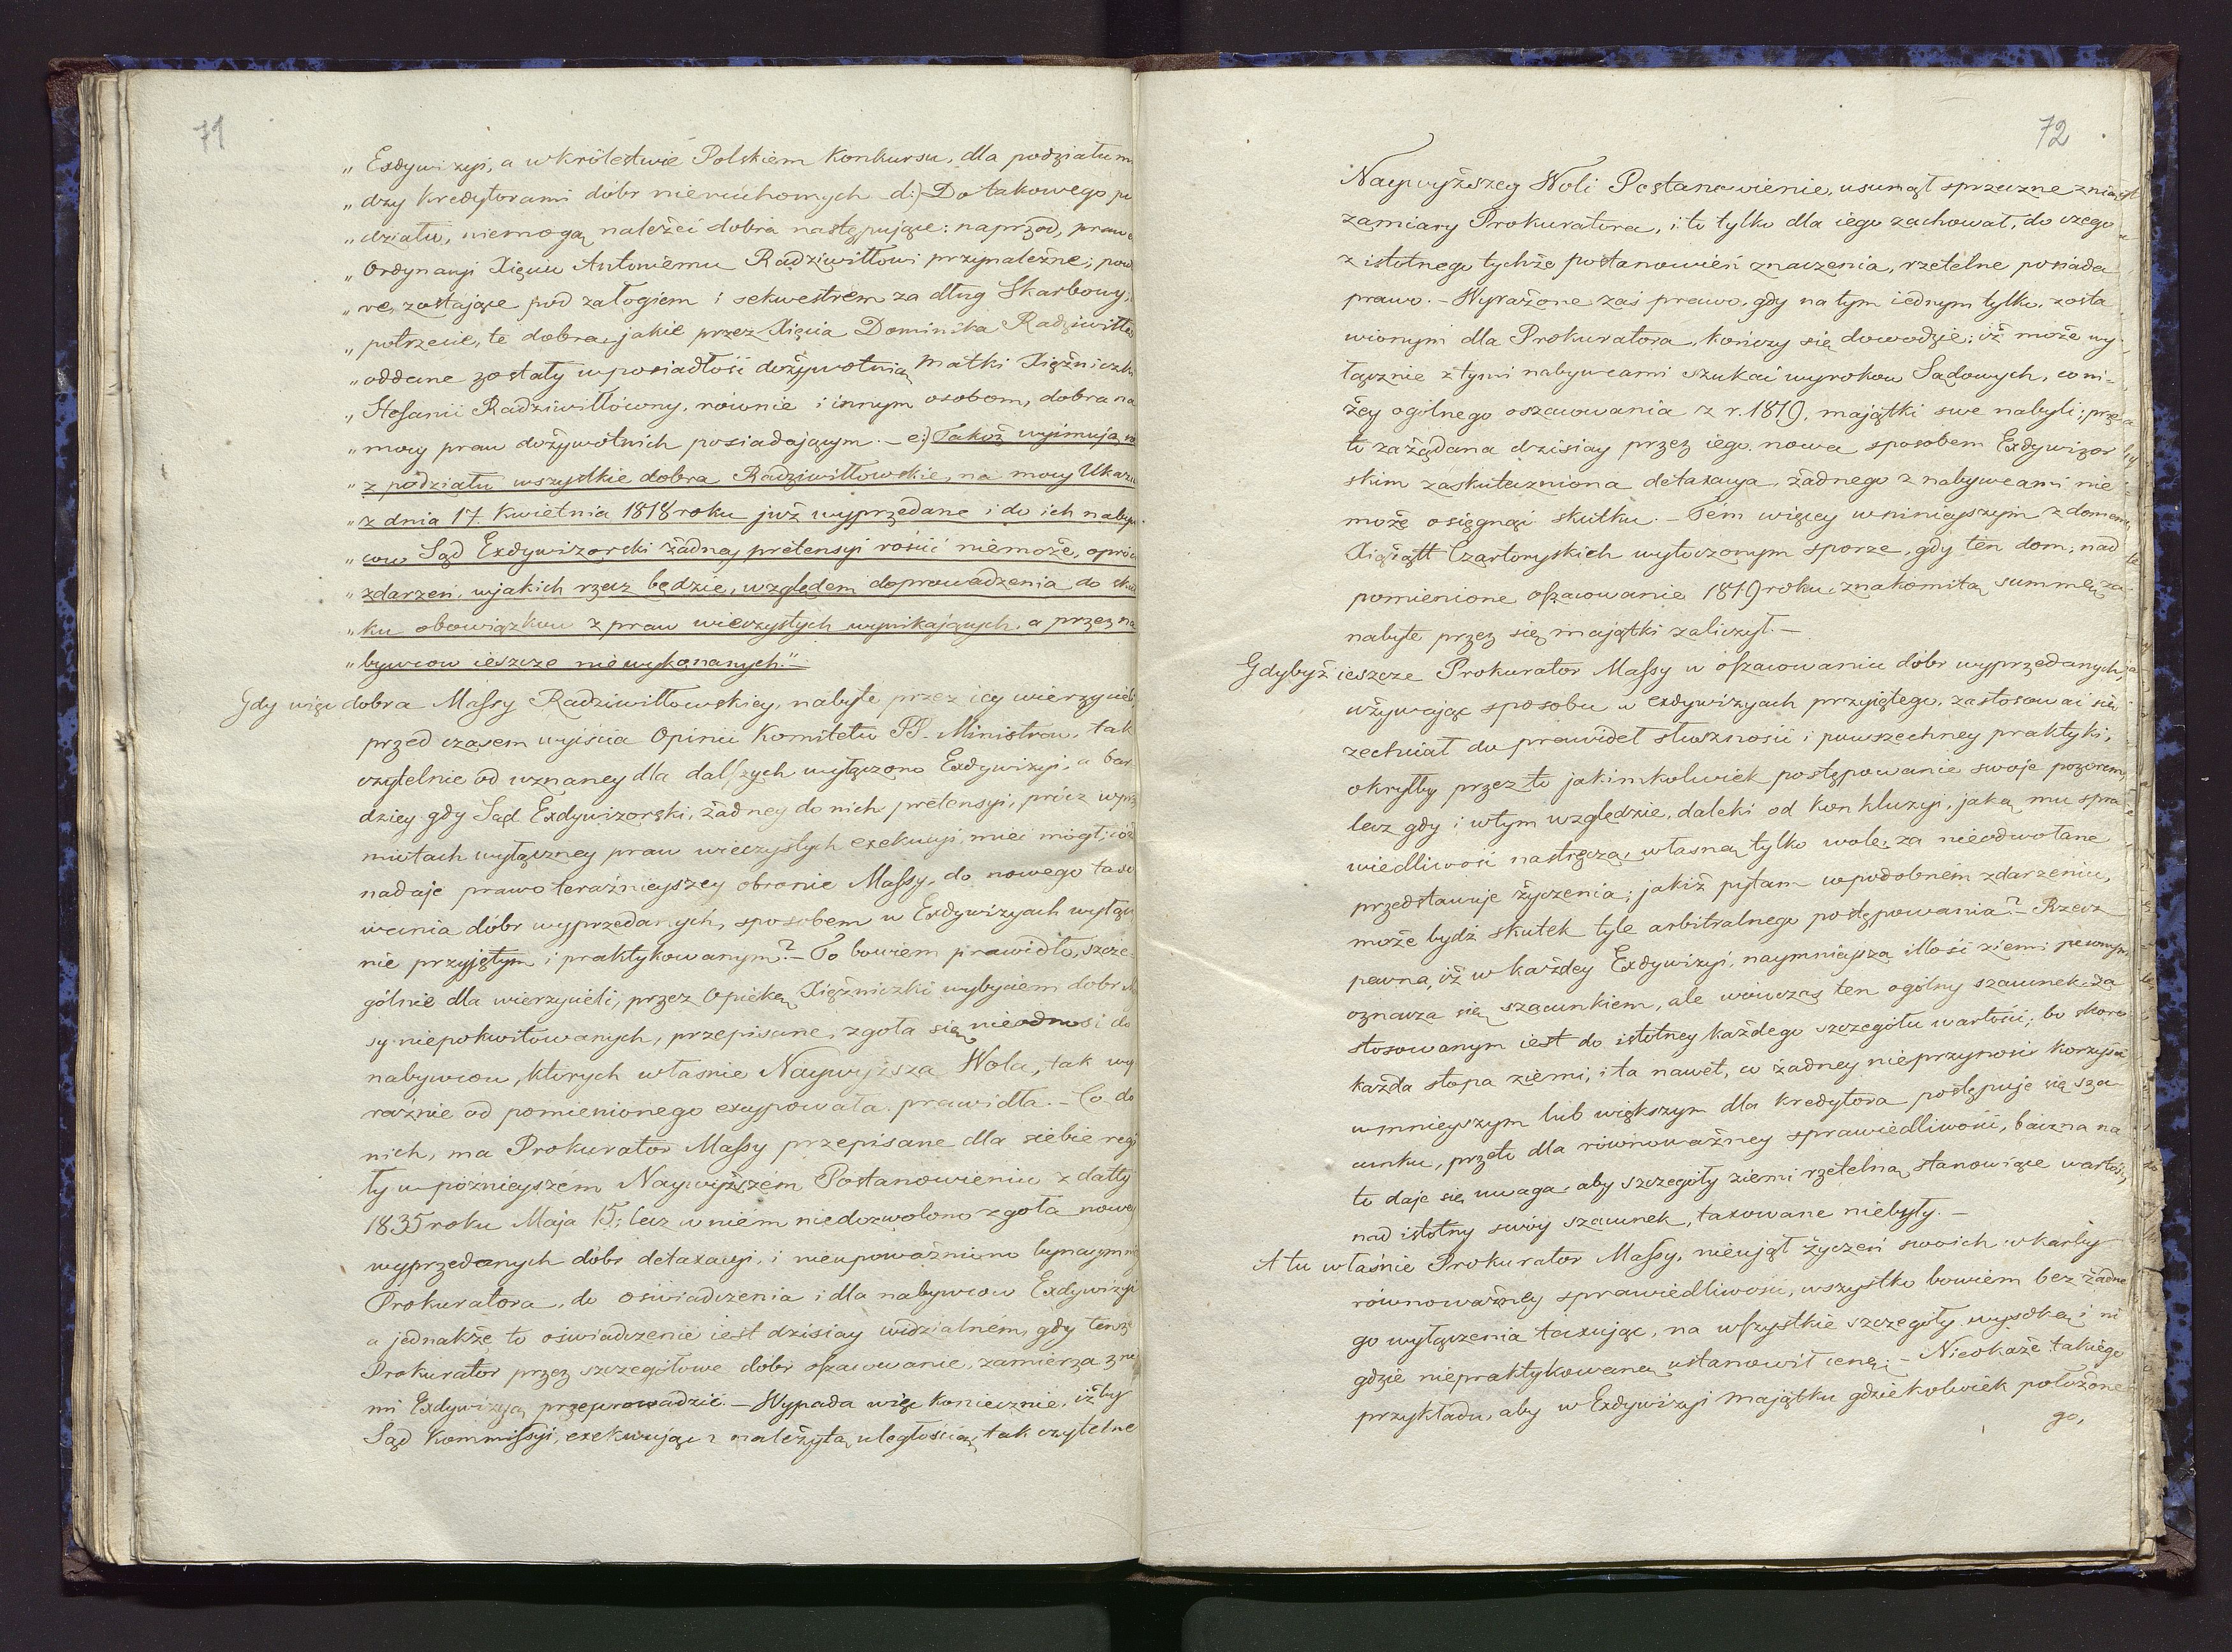 71
„ Exdywizyi, a w Królestwie Polskiem Konkursu, dla podziału m
„ dzy kredytorami dóbr nieruchomych d:) Do takowego po
„ działu, niemogą należeć dobra następujące: naprzod, praw
„ Ordynacyi Xięciu Antoniemu Radziwiłłowi przynależne; pow
„ re, zostające pod załogiem i sekwestrem za dług Skarbowy,
„ potrzecie, te dobra, jakie przez Xięcia Dominika Radziwiłła
„ oddane zostały w posiadłość dożywotnią Matki Xiężniczki
„ Stefanii Radziwiłłowny, równie i innym osobom, dobra na
„ mocy praw dożywotnich posiadającym. – e:) Takoż wyimują się
„ z podziału wszystkie dobra Radziwiłłowskie, na mocy Ukazu
„ z dnia 17. Kwietnia 1818 roku już wyprzedane i do ich nabyw
„ cow Sąd Exdywizorski żadnej pretensyi rościć niemoże, oprócz
„ zdarzeń, w jakich rzecz będzie, względem doprowadzenia do skut
„ ku obowiązkow z praw wieczystych wynikających, a przez na
„ bywcow ieszcze niewykonanych."–
Gdy więc dobra Massy Radziwiłłowskiey, nabyte przez iey wierzycieli
przed czasem wyiścia Opinii Komitetu PP. Ministrow, tak
czytelnie od uznaney dla dalszych wyłączono Exdywizyi, a bar
dziey gdy Sąd Exdywizorski, żadney do nich pretensyi, prócz w prz
miotach wyłączney praw wieczystych exekucyi, mieć mógł, cóż
nadaje prawo teraźnieyszey obronie Massy, do nowego taxo
wania dóbr wyprzedanych, sposobem w Exdywizyach wyłącz
nie przyjętym i praktykowanym? – To bowiem prawidło, szcze
gólnie dla wierzycieli, przez Opiekę Xiężniczki wybyciem dobr Mas
sy niepokwitowanych, przepisane, zgoła się nieodnosi do
nabywcow, ktorych własnie Naywyższa Wola, tak wy
raźnie od pomienionego excypowała prawidła. – Co do
nich, ma Prokurator Massy przepisane dla siebie regu
ły w późnieyszém Naywyższém Postanowieniu z datty
1835 roku Maja 15; lecz w niém niedozwolono zgoła nowey
wyprzedanych dóbr detaxacyi, i nieupoważniono bynaymniey
Prokuratora, do oświadczenia i dla nabywcow Exdywizyi
a jednakże to oświadczenie iest dzisiay widzialnem, gdy tenże
Prokurator przez szczegółowe dóbr oszacowanie, zamierza z ni
mi Exdywizyą przeprowadzić. – Wypada więc koniecznie, iżby
Sąd Kommissyi, exekwując z należytą uległością, tak czytelne
72
Naywyższey Woli Postanowienie, usunął sprzeczne z nią
zamiary Prokuratora, i to tylko dla iego zachował, do czego
z istotnego tychże postanowień znaczenia, rzetelne posiada
prawo. – Wyrażone zaś prawo, gdy na tym iednym tylko, zosta
wionym dla Prokuratora, kończy się dowodzie; iż może wy
łącznie z tymi nabywcami szukać wyrokow Sądowych, co ni-
żey ogólnego oszacowania z r. 1819, majątki swe nabyli; prze
to zażądana dzisiay przez iego nowa sposobem Exdywizor
skim zaskuteczniona detaxacya, żadnego z nabywcami nie
może osięgnąć skutku. – Tém więcey w ninieyszym z domem
Xiążątt Czartoryskich wytoczonym sporze, gdy ten dom, nad
pomienione oszacowanie 1819 roku, znakomitą summę za
nabyte przez się majątki zaliczył. –
Gdybyż ieszcze Prokurator Massy w oszacowaniu dóbr wyprzedanych,
używając sposobu w exdywizyach przyiętego, zastosować się
zechciał do prawideł słuszności i powszechney praktyki,
okryłby przez to jakimkolwiek postępowanie swoje pozorem,
lecz gdy i w tym względzie, daleki od konkluzyi, jaką mu spra
wiedliwość nastręcza, własną tylko wolę, za nieodwołane
przedstawuje życzenia; jakiż pytam w podobném zdarzeniu,
może bydź skutek tyle arbitralnego postępowania? – Rzecz
pewna, iż w każdey Exdywizyi, naymnieysza illość ziemi pewnym
oznacza się szacunkiem, ale wówczas ten ogólny szacunek za
stosowanym iest do istotney każdego szczegółu wartości; bo skoro
każda stopa ziemi, i ta nawet, co żadney nieprzynosi korzyści
w mnieyszym lub większym dla kredytora postępuje się sza
cunku, przeto dla równoważney sprawiedliwości, baczna na
to daje się uwaga, aby szczegóły ziemi rzetelną stanowiące wartość,
nad istotny swóy szacunek, taxowane niebyły. –
A tu właśnie Prokurator Massy, nieujął życzeń swoich w karby
równoważney sprawiedliwości, wszystko bowiem bez żadne
go wyłączenia taxując, na wszystkie szczegóły wysoką i ni
gdzie niepraktykowaną ustanowił cenę. – Nieokaże takiego
przykładu, aby w Exdywizyi majątku gdziekolwiek położone
go,